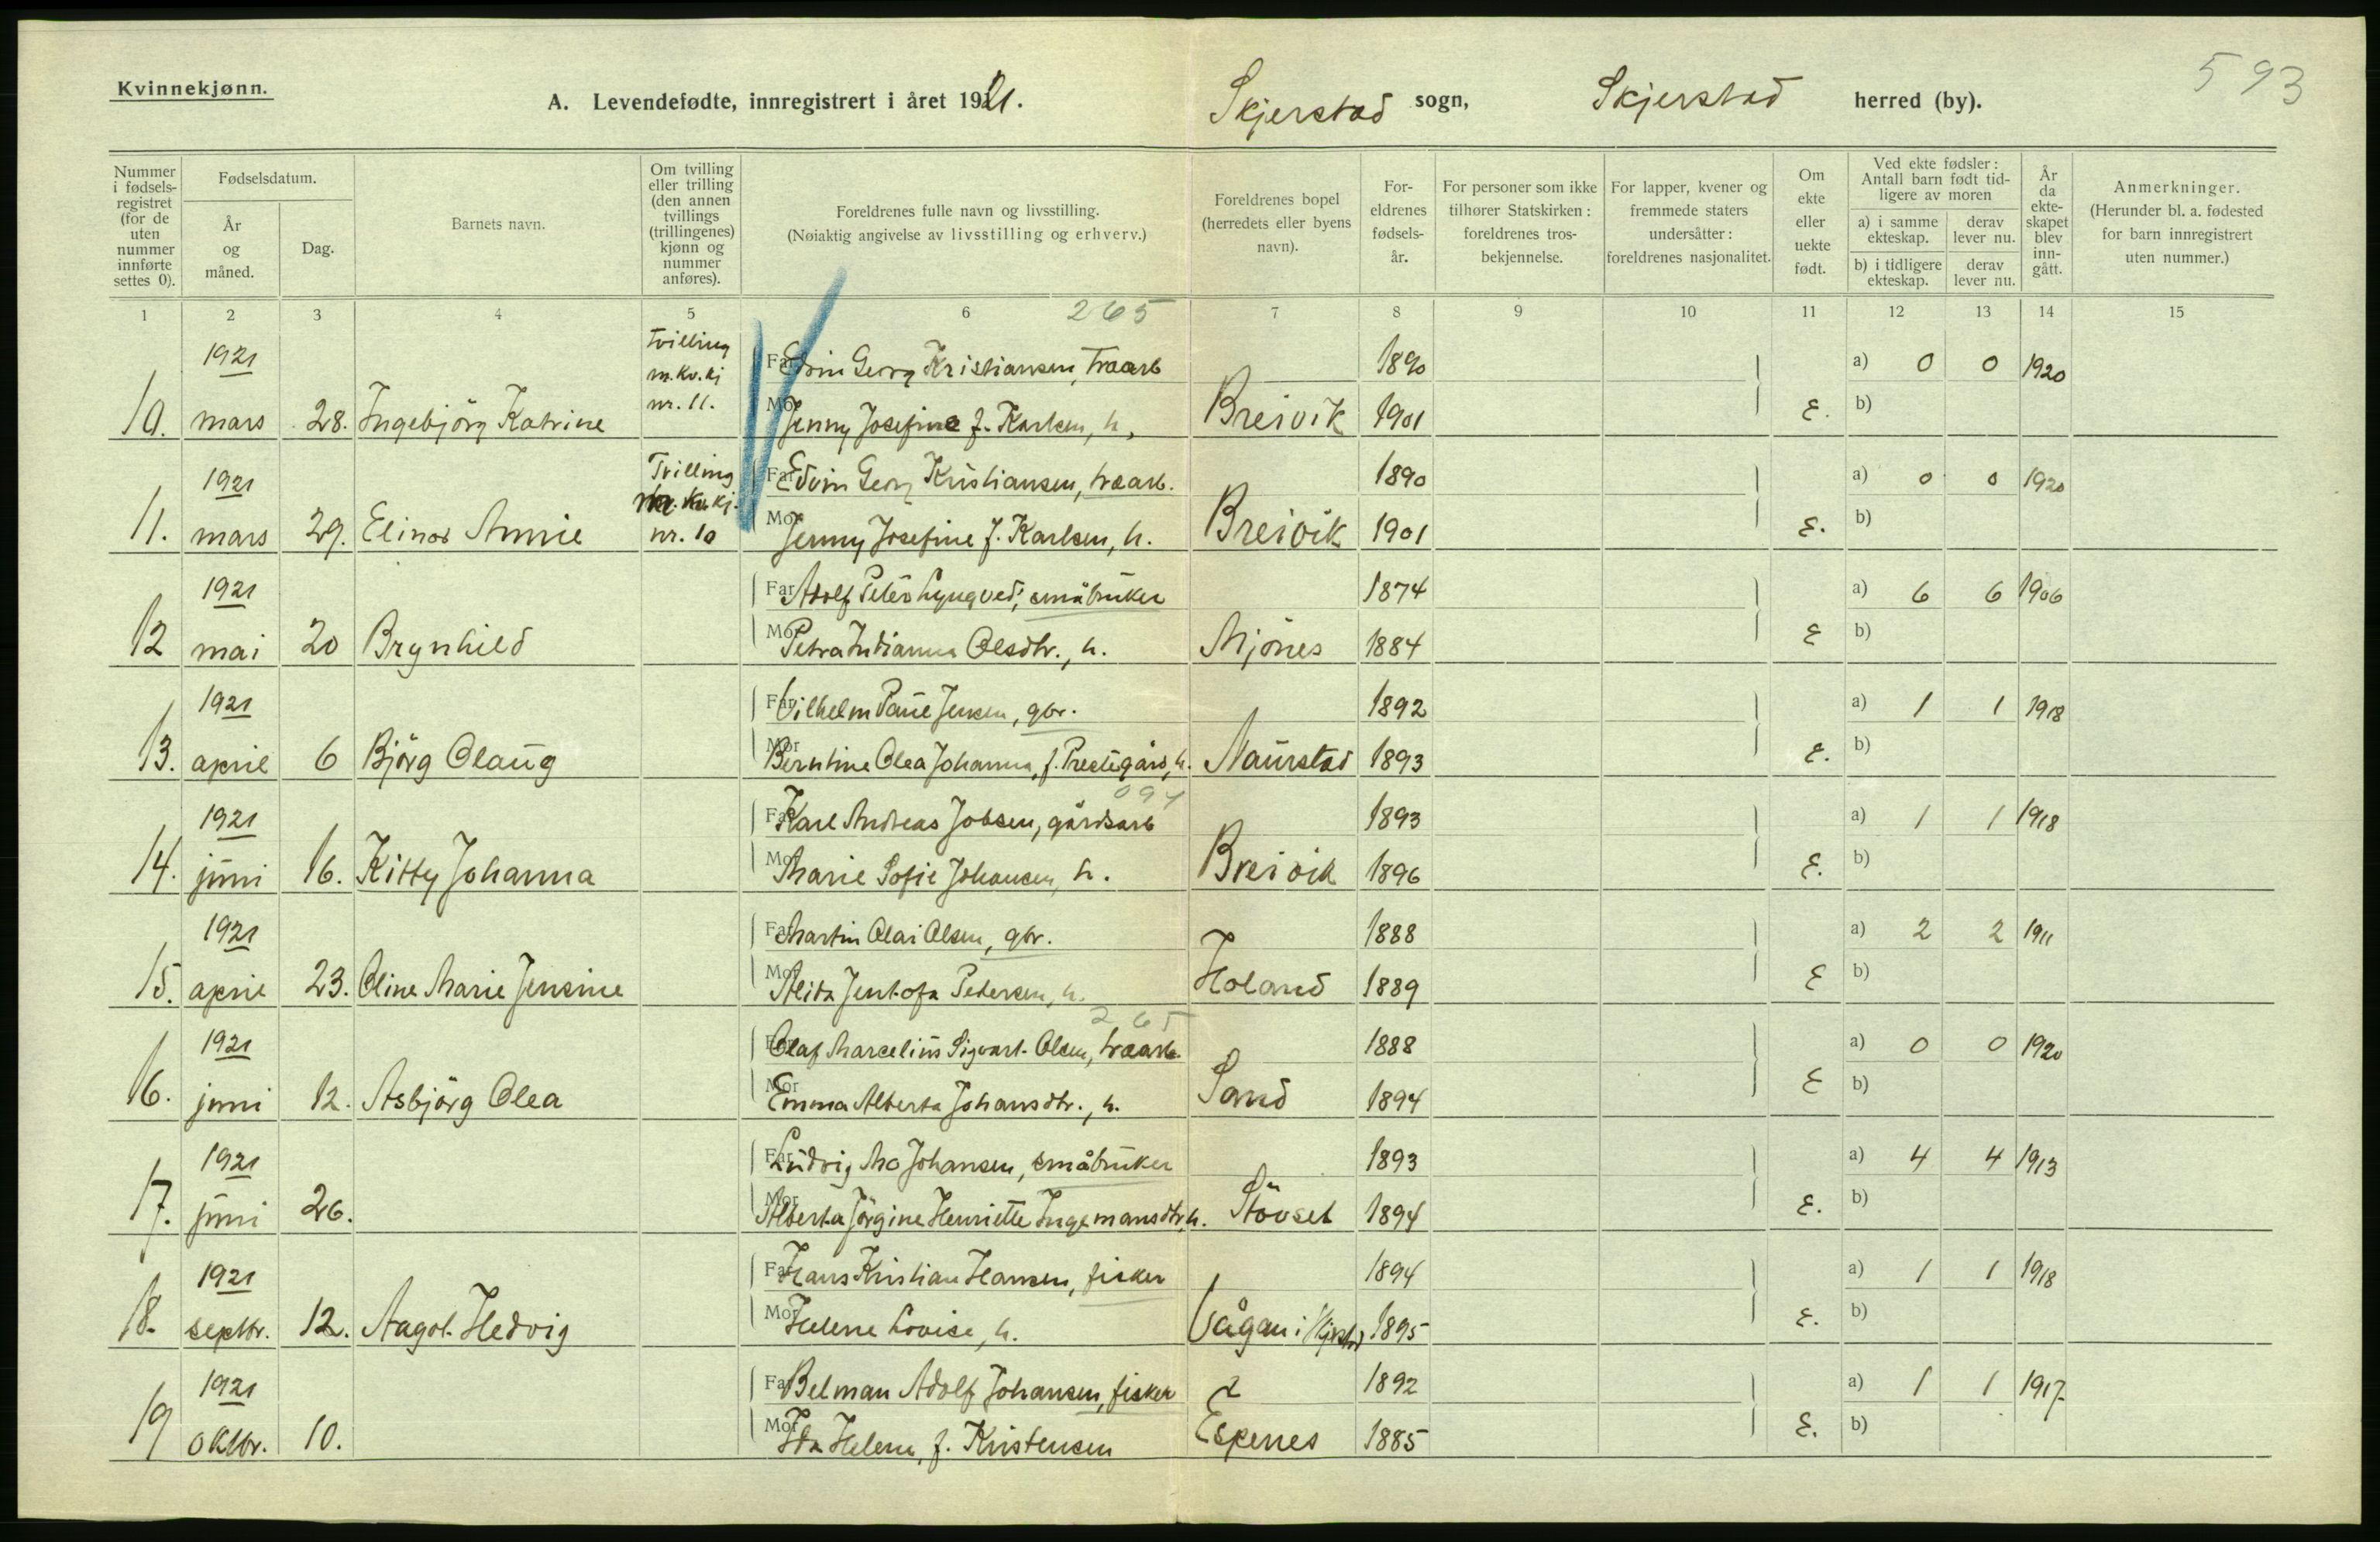 593
Kvinnekjønn.
A. Levendefødte, innregistrert i året 1921. Skjerstad sogn, Skjerstad herred (by).
Nummer i fødsels-registret (for de uten nummer innførte settes 0).
Fødselsdatum.
År og måned.
Dag.
Barnets navn.
Om tvilling eller trilling (den annen tvillings (trillingenes) kjønn og nummer anføres).
Foreldrenes fulle navn og livsstilling.
(Nøiaktig angivelse av livsstilling og erhverv.)
Foreldrenes bopel (herredets eller byens navn).
For-eldrenes fødsels-år.
For personer som ikke tilhører Statskirken: foreldrenes tros-bekjennelse.
For lapper, kvener og fremmede staters undersåtter: foreldrenes nasjonalitet.
Om ekte eller uekte født.
Ved ekte fødsler: Antall barn født tid-ligere av moren
a) i samme ekteskap. derav lever nu.
b) i tidligere ekteskap. derav lever nu.
År da ekte-skapet blev inn-gått.
Anmerkninger.
(Herunder bl. a. fødested for barn innregistrert uten nummer.)
1 2 3 4 5 6 265 7 8 9 10 11 12 13 14 15
1921 Tvilling m. kv. kj nr. 11. Far Edvin Georg Kristiansen, træarb 1890 a) 0 0 1920
10. mars 28. Ingebjörg Katrine Mor Jenny Josefine f. Karlsen, h, Breivik 1901 E. b)
1921 Tvilling m. kv. kj. nr. 10 Far Edvin Georg Kristiansen, træarb. 1890 a) 0 0 1920
11. mars 29. Elinor Annie Mor Jenny Josefine f. Karlsen, h. Breivik 1901 E. b)
1921 Far Adolf Peter Lyngved, småbruker 1874 a) 6 6 1906
12 mai 20 Brynhild Mor Petra Indianna Olsdtr., h. Mjönes 1884 E b)
1921 Far Vilhelm Paul Jensen, gbr. 1892 a) 1 1 1918
13. april 6 Björg Olaug Mor Berntine Olea Johanna, f. Prestegård, h. Naurstad 1893 E. b)
094
1921 Far Karl Andreas Jobsen, gårdsarb 1893 a) 1 1 1918
14. juni 16. Kitty Johanna Mor Marie Sofie Johansen, h. Breivik 1896 E. b)
1921 Far Martin Olai Olsen, gbr. 1888 a) 2 2 1911
15. april 23. Oline Marie Jensine Mor Alida Jentofa Pedersen, h. Holand 1889 E b)
265
1921 Far Olaf Marcelius Sigvart Olsen, træarb. 1888 a) 0 0 1920
16. juni 12. Asbjörg Olea Mor Emma Alberta Johansdtr., h. Sand 1894 E b)
1921 Far Ludvig Mo Johansen, småbruker 1893 a) 4 4 1913
17. juni 26. Mor Alberta Jörgine Henriette Ingemansdtr, h. Stövset 1894 E. b)
1921 Far Hans Kristian Hansen, fisker 1894 a) 1 1 1918
18. septbr. 12. Aagot Hedvig Mor Helene Lovise, h. Vågan i Skjerstad 1895 E. b)
1921 Far Belman Adolf Johansen, fisker 1892 a) 1 1 1917
19 oktbr. 10. Mor Ida Helene, f. Kristensen Espenes 1885 E. b)